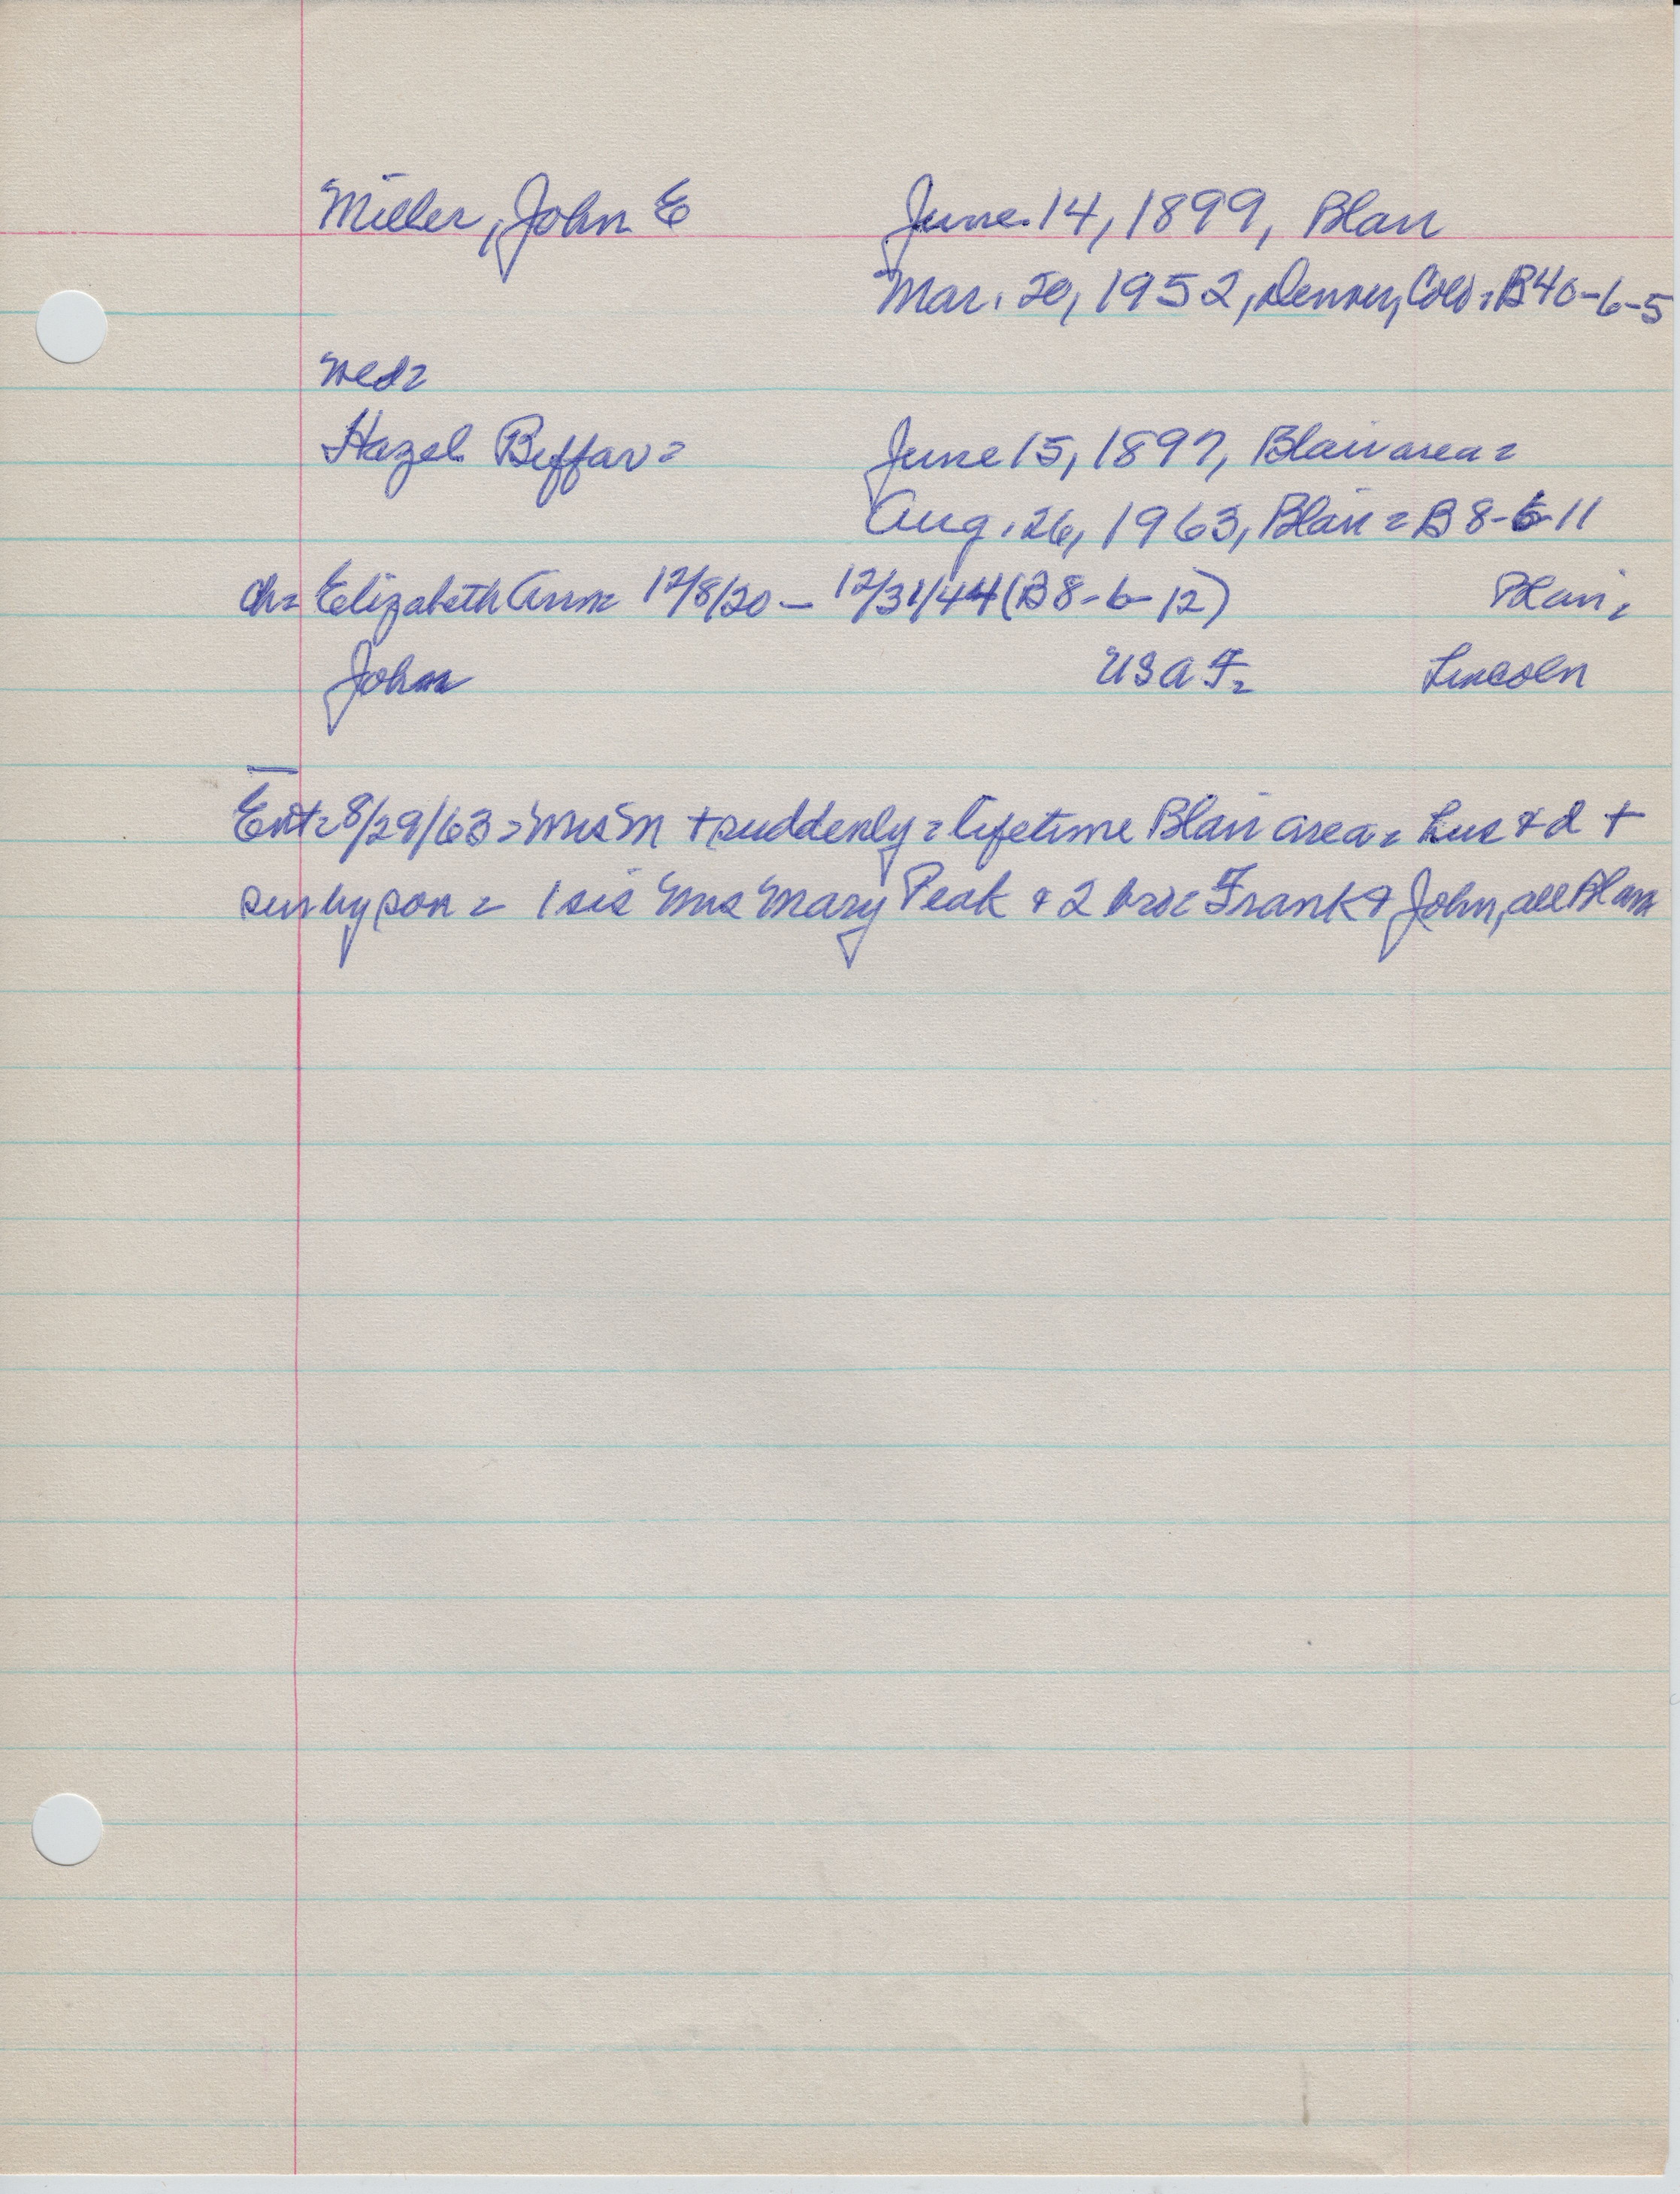 Miller, John E June 14, 1899, Blair
Mar. 20, 1952, Denver, Colo = B40-6-5
wed=
Hazel Beffar = June 15, 1897, Blair area =
Aug. 26, 1963, Blair = B8-6-11
ch= Elizabeth Ann = 12/8/20 – 12/31/44 (B8-6-12) Blair =
John USAF = Lincoln
Ent= 8/29/63 = Mrs M + suddenly = lifetime Blair area = hus & d +
sur by son = 1 sis Mrs Mary Peak & 2 bro = Frank & John, all Blair